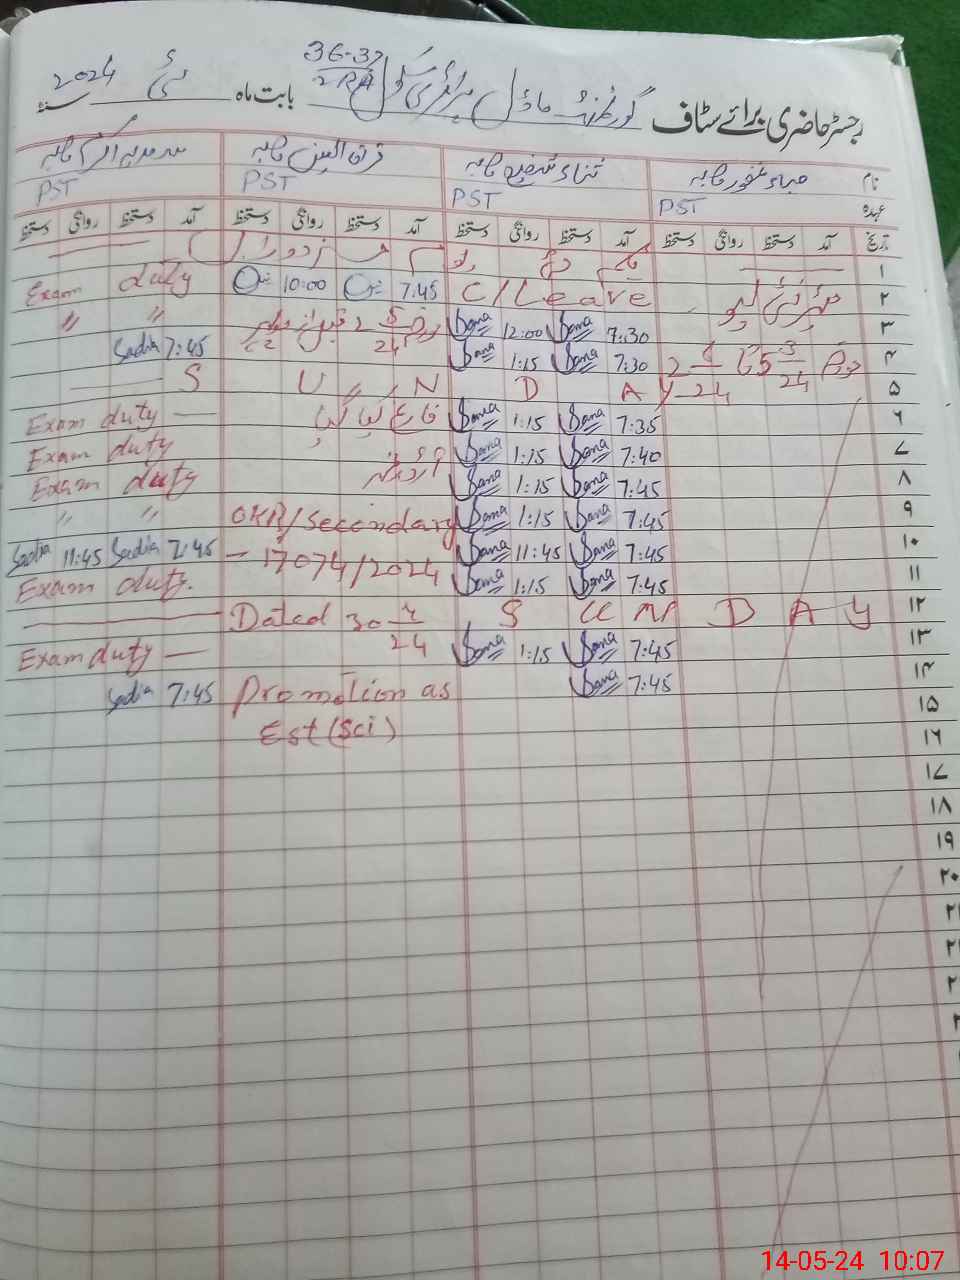 رجسٹر حاضری برائے سٹاف گورنمنٹ ماڈل پرائمری سکول 36-37/2RA بابت ماہ مئی 2024 سنہ
نام صباء غفور صاحبہ ثناء شفیع صاحبہ قرۃ العین صاحبہ سعدیہ اکرم صاحبہ
عہدہ PST PST PST PST
تاریخ آمد دستخط روانگی دستخط آمد دستخط روانگی دستخط آمد دستخط روانگی دستخط آمد دستخط روانگی دستخط
۱
۲ C/Leave 7:45 10:00 Exam duty
۳ 7:30 Sana 12:00 Sana 2 5/24 " "
۴ 7:30 Sana 1:15 Sana 7:45 Sadia
۵ S U N D A Y
۶ 7:35 Sana 1:15 Sana فارغ کیا گیا Exam duty —
۷ 7:40 Sana 1:15 Sana Exam duty
۸ 7:45 Sana 1:15 Sana Exam duty
۹ 7:45 Sana 1:15 Sana /Secondary " "
۱۰ 7:45 Sana 11:45 Sana — 17074/2024 7:45 Sadia 11:45 Sadia
۱۱ 7:45 Sana 1:15 Sana Exam duty.
۱۲ Dated 30 4/24 S U N D A Y
۱۳ 7:45 Sana 1:15 Sana Exam duty —
۱۴ 7:45 Sana Promotion as 7:45 Sadia
۱۵ Est (Sci)
۱۶
۱۷
۱۸
۱۹
۲۰
14-05-24 10:07